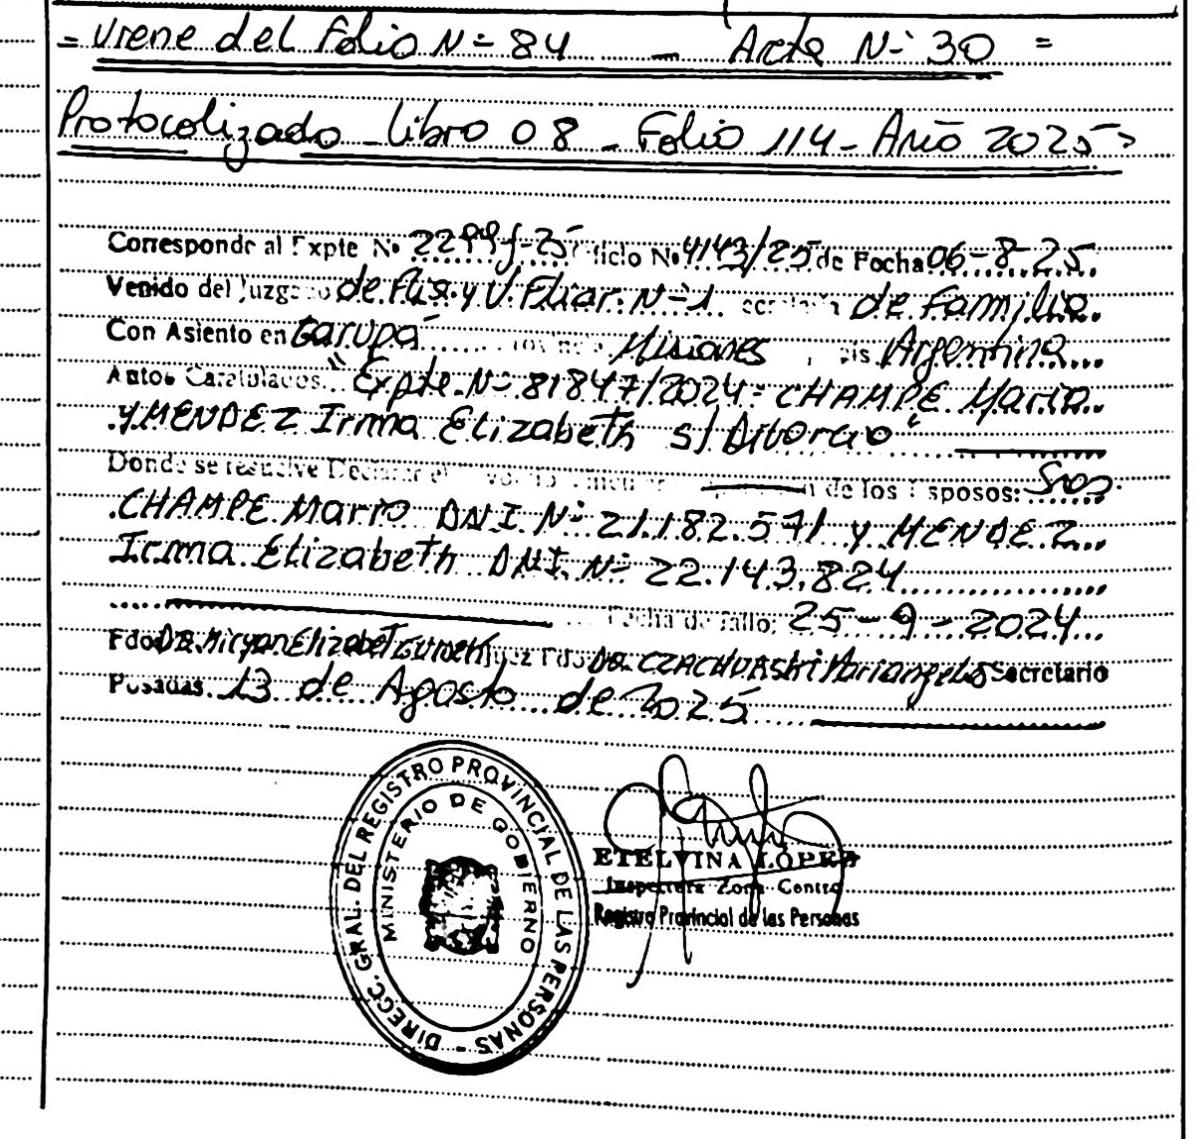 = Viene del Folio Nº 84 — Acta Nº 30 =
Protocolizado - Libro 08 - Folio 114 - Año 2025 =
Corresponde al Expte Nº 2299 -25 ficio Nº 4143/25 de Fecha 06-8-25.
Venido del Juzgado de Flia. y V. Fliar. Nº 1 de Familia.
Con Asiento en Garupá Misiones is Argentina...
Autos Caratulados "Expte. Nº 81847/2024 = CHAMPE Mario
y MENDEZ Irma Elizabeth s/ Divorcio"
Donde se resuelve Declarar el de los Esposos: Sres.
CHAMPE Mario DNI Nº 21.182.571 y MENDEZ
Irma Elizabeth DNI. Nº 22.143.824
Fecha de fallo, 25-9-2024
Fdo Dra. Miryan Elizabet Juez Fdo Da. CZACHURSKI Mariangeles Secretario
Posadas. 13 de Agosto de 2025
DIRECC. GRAL. DEL REGISTRO PROVINCIAL DE LAS PERSONAS -
MINISTERIO DE GOBIERNO
ETELVINA LÓPEZ
Inspectora Zona Centro
Registro Provincial de las Personas